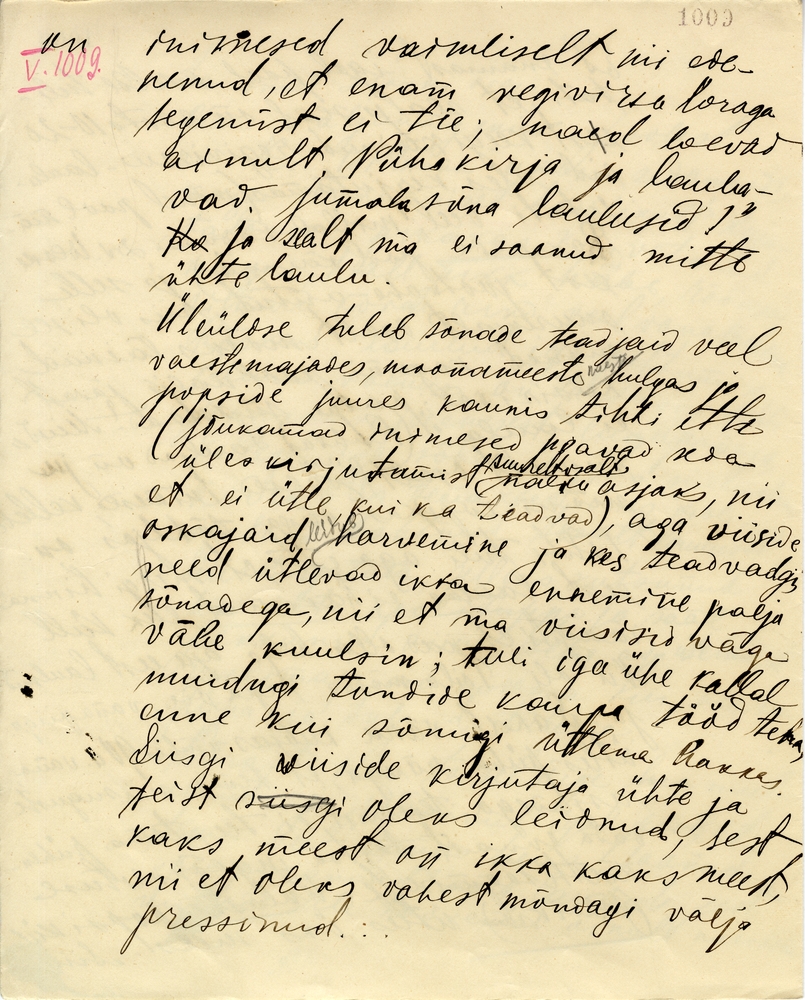 1009
V. 1009.
on inimesed vaimliselt nii ede-
nenud, et enam regivirsa loraga
tegemist ei tee; naad loevad
ainult Pühakirja ja laula-
vad jumalasõna laulusid!"
Ka ja sealt ma ei saanud mitte
ühte laulu.
Üleüldse tuleb sõnade teadjaid veel
vaestemajades, moonameeste hulgas ja
popside juures kaunis tihti ette
(jõukamad inimesed peavad seda
üleskirjutamist suurelt osalt naeru asjaks, nii
et ei ütle kui ka teadvad), aga viiside
oskajaid harvemine ja kes teadvadgi,
need ütlevad ikka ennemine palja
sõnadega, nii et ma viisisid väga
vähe kuulsin; tuli iga ühe kallal
muidugi tundide kaupa tööd teha,
enne kui sõnugi ütlema hakkas.
Siisgi viiside kirjutaja ühte ja
teist siisgi oleks leidnud, sest
kaks meest on ikka kaks meest,
nii et oleks vahest mõndagi välja
pressinud...